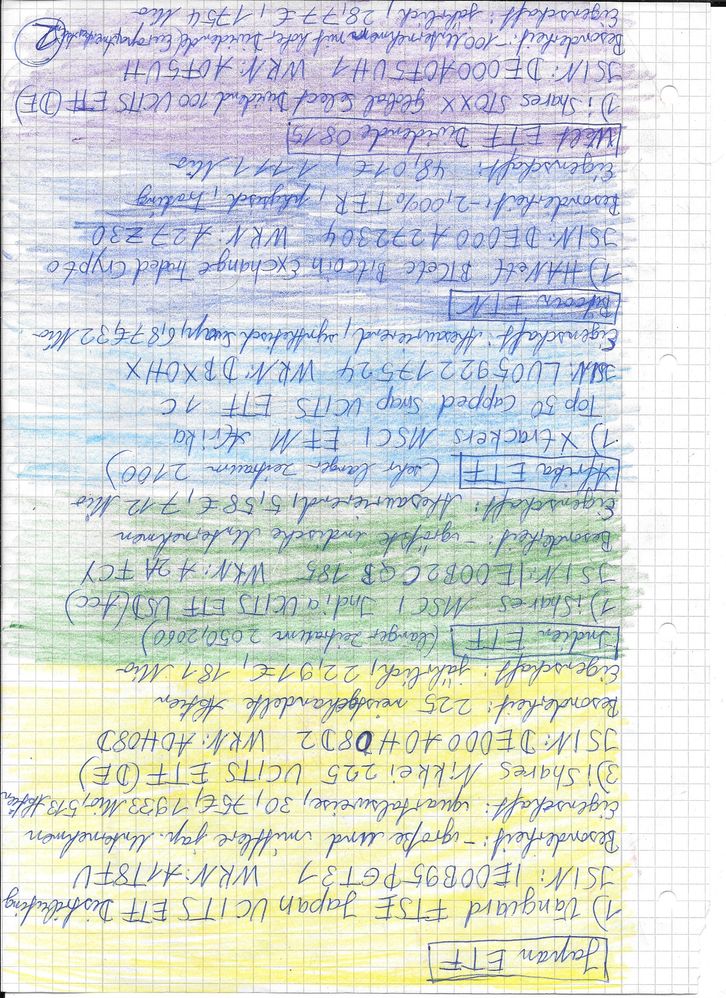 Japan ETF
1) Vanguard FTSE Japan UCITS ETF Distributing
JSIN: IE00B95PGT31 WKN: A1T8FV
Besonderheit: - große und mittlere jap. Unternehmen
Eigenschaft: quartalsweise, 30,75€, 1933 Mio, 513 Aktien
3) iShares Nikkei 225 UCITS ETF (DE)
JSIN: DE000A0H08D2 WKN: A0H08D
Besonderheit: 225 meistgehandelte Aktien
Eigenschaft: jährlich, 22,91€, 181 Mio
Indien ETF (langer Zeitraum 2050, 2060)
1) iShares MSCI India UCITS ETF USD (Acc)
JSIN: IE00B2CQB185 WKN: A2AFCY
Besonderheit: - größte indische Unternehmen
Eigenschaft: thesaurierend, 5,58€, 712 Mio
Afrika ETF (sehr langer Zeitraum 2100)
1) Xtrackers MSCI EFM Afrika
Top 50 Capped Swap UCITS ETF 1C
JSIN: LU0592217524 WKN: DBX0HX
Eigenschaft: thesaurierend, synthetisch Swap, 6,87€, 32 Mio
Bitcoin ETN
1) HANetf BTCetc Bitcoin Exchange Traded Crypto
JSIN: DE000A27Z304 WKN: A27Z30
Besonderheit: - 2,00% TER, physisch, Trading
Eigenschaft: 48,01€, 1111 Mio
Welt ETF Dividende 0815
1) iShares STOXX Global Select Dividend 100 UCITS ETF (DE)
JSIN: DE000A0F5UH1 WKN: A0F5UH
Besonderheit: - 100 Unternehmen mit hoher Dividende
Eigenschaft: jährlich, 28,77€, 1754 Mio
2